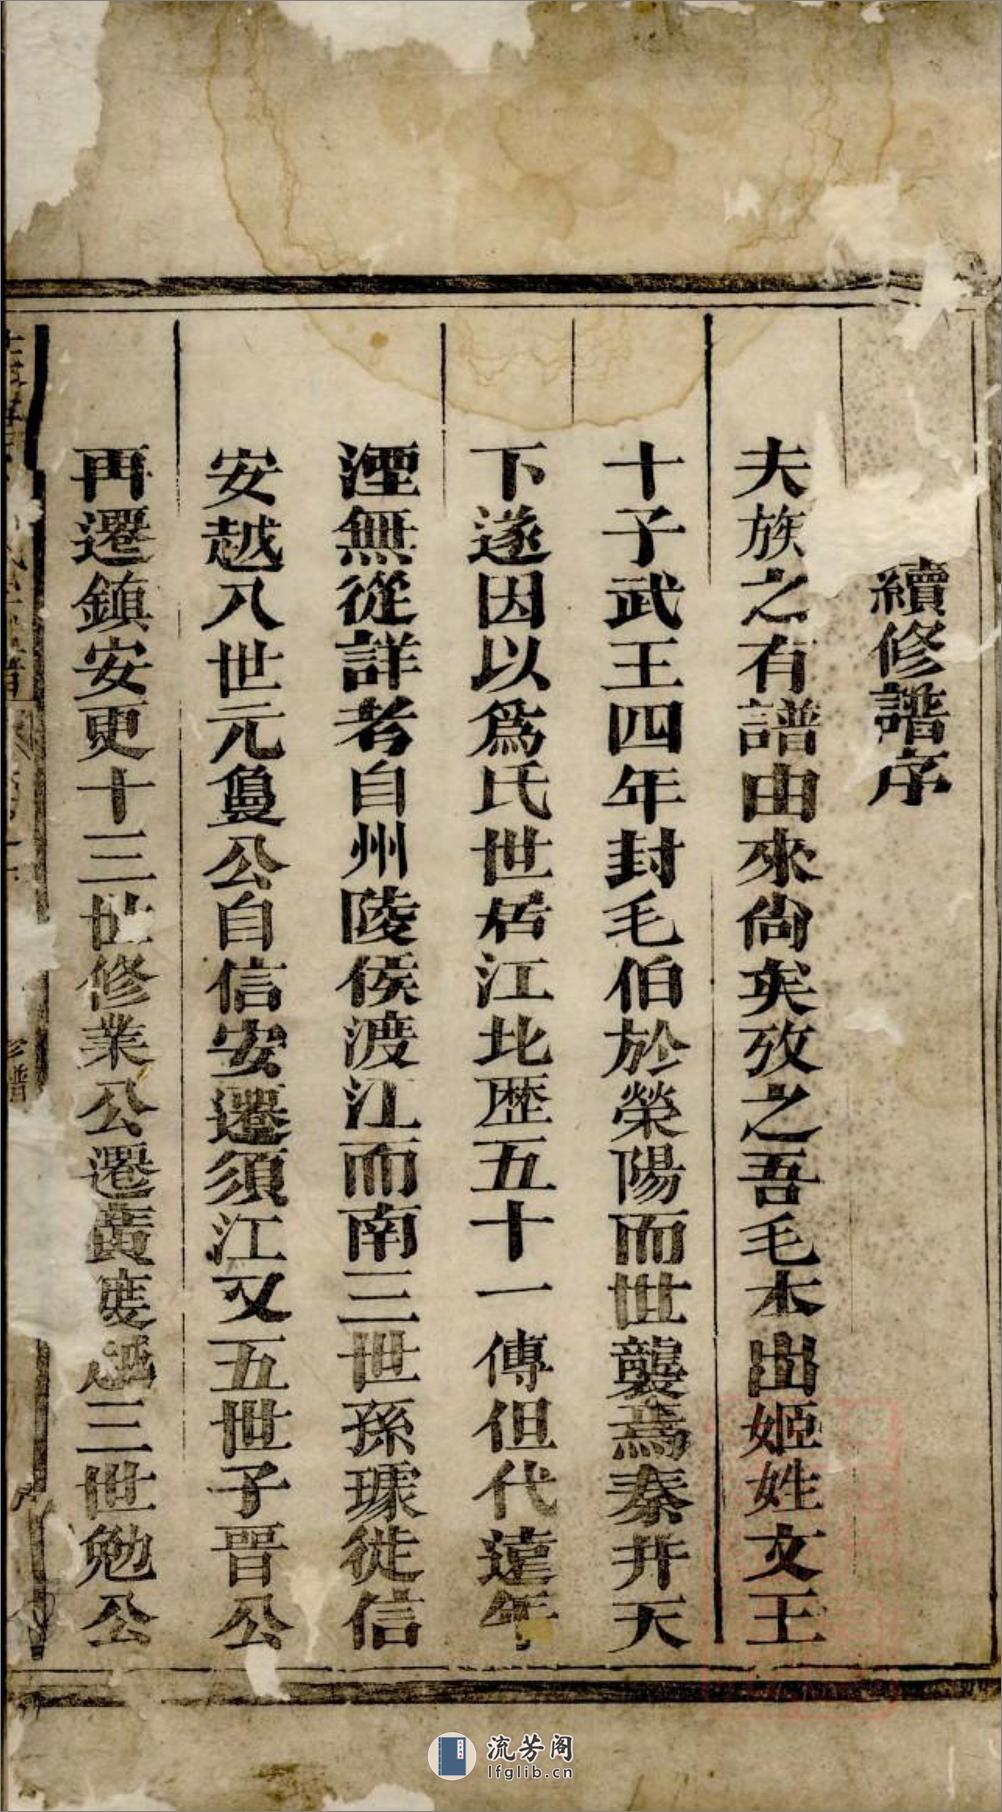 續修譜序
夫族之有譜由來尙矣攷之吾毛本出姬姓文王
十子武王四年封毛伯於榮陽而世襲焉秦并天
下遂因以爲氏世居江北歷五十一傳但代遠年
湮無從詳者自州陵侯渡江而南三世孫璩徙信
安越八世元公自信安遷須江又五世子晋公
再遷鎮安更十三世修業公遷黃度越三世勉公
譜
流芳阁
lfglib.cn